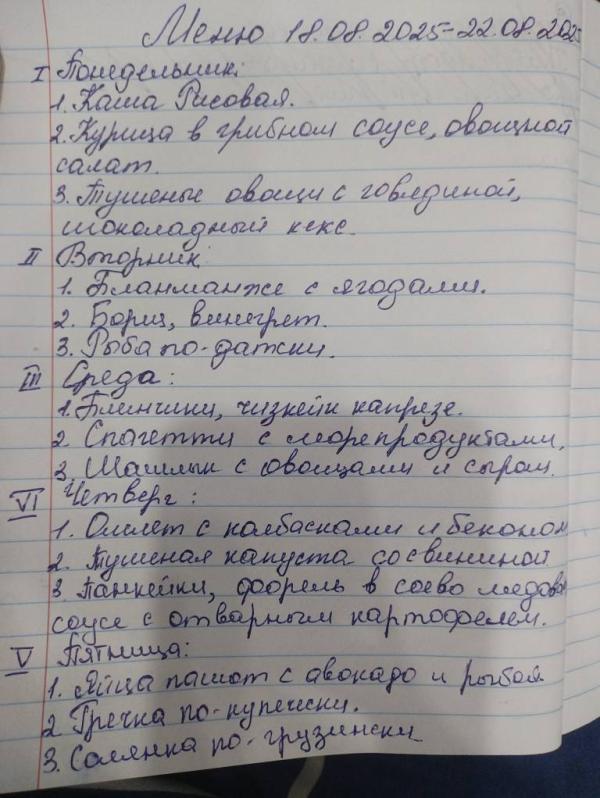 Меню 18.08.2025-22.08.2025
I Понедельник:
1. Каша Рисовая.
2. Курица в грибном соусе, овощной
салат.
3. Тушеные овощи с говядиной,
шоколадный кекс.
II Вторник:
1. Бланманже с ягодами.
2. Борщ, винегрет.
3. Рыба по-датски.
III Среда:
1. Блинчики, чизкейк капрезе.
2. Спагетти с морепродуктами.
3. Шашлык с овощами и сыром.
VI Четверг:
1. Омлет с колбасками и беконом
2. Тушеная капуста со свининой
3. Панкейки, форель в соево медовом
соусе с отварным картофелем.
V Пятница:
1. Яйца пашот с авокадо и рыбой
2. Гречка по-купечески.
3. Солянка по-грузински